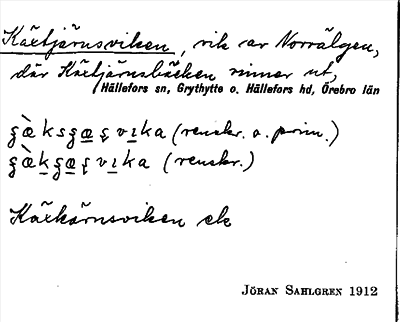 Käxtjärnsviken, vik av Norrälgen,
där Käxtjärnsbäcken rinner ut,
Hällefors sn, Grythytte o. Hällefors hd, Örebro län
(renskr. o. prim.)
(renskr.)
Käxkärnsviken ek
JÖRAN SAHLGREN 1912